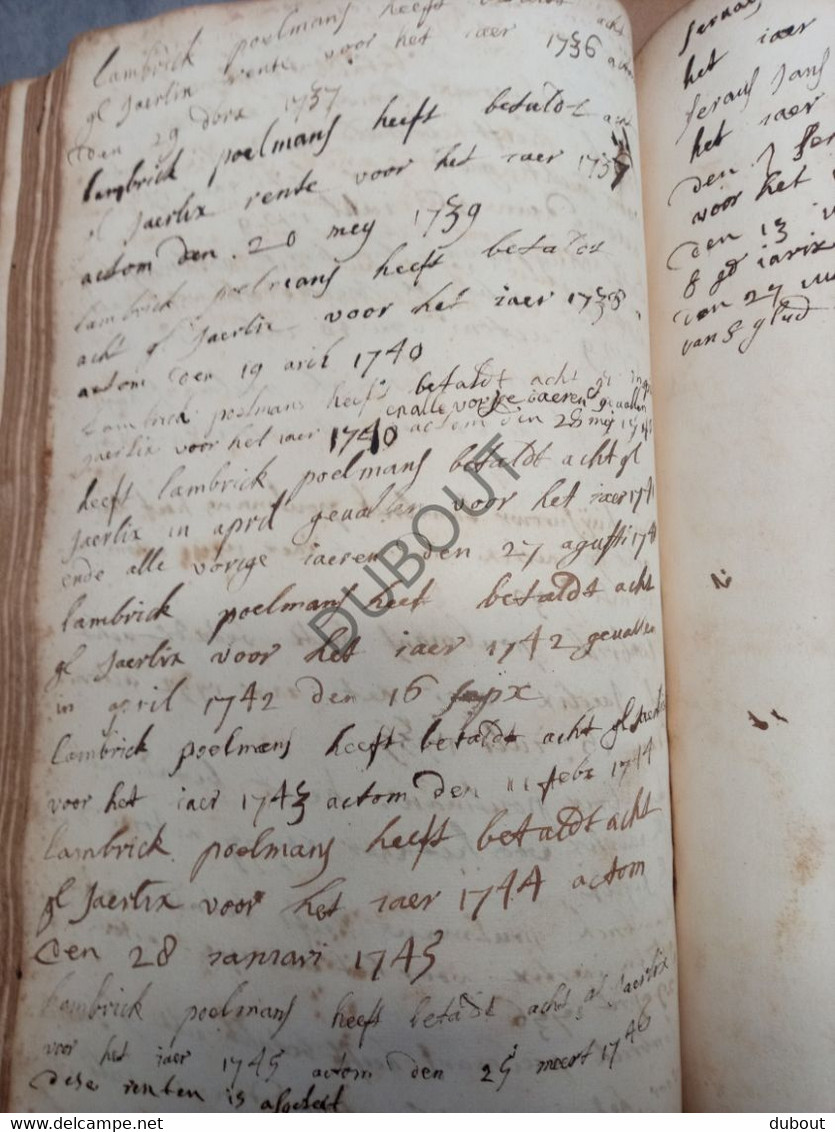 lambrick poelmans heeft betaldt acht
gl Jaerlix rente voor het iaer 1736 actom
den 29 dbrx 1737
lambrick poelmans heeft betaldt acht
gl Jaerlix rente voor het iaer 1737
actom den 20 mey 1739
lambrick poelmans heeft betaldt
acht gl Jaerlix voor het iaer 1738
actom den 19 aril 1740
lambrick poelmans heeft betaldt acht gl
en alle vorige iaeren geuallen
Jaerlix voor het iaer 1740 actom den 28 mey
heeft lambrick poelmans betaldt acht gl
Jaerlix in april geuallen voor het iaer 174
ende alle vorige iaeren den 27 agusti 174
lambrick poelmans heeft betaldt acht
gl Jaerlix voor het iaer 1742 geuallen
in april 1742 den 16
lambrick poelmans heeft betaldt acht gl
voor het iaer 1743 actom den 11 febx 1744
lambrick poelmans heeft betaldt acht
gl Jaerlix voor het iaer 1744 actom
den 28 ianuari 1745
lambrick poelmans heeft betaldt acht gl Jaerlix
voor het iaer 1745 actom den 25 meert 1746
dese renten is
het iaer
seraus Jans
het iaer
den
voor het
den 13
8 gl iarix
van 27
van 8
DUBOUT
dubout